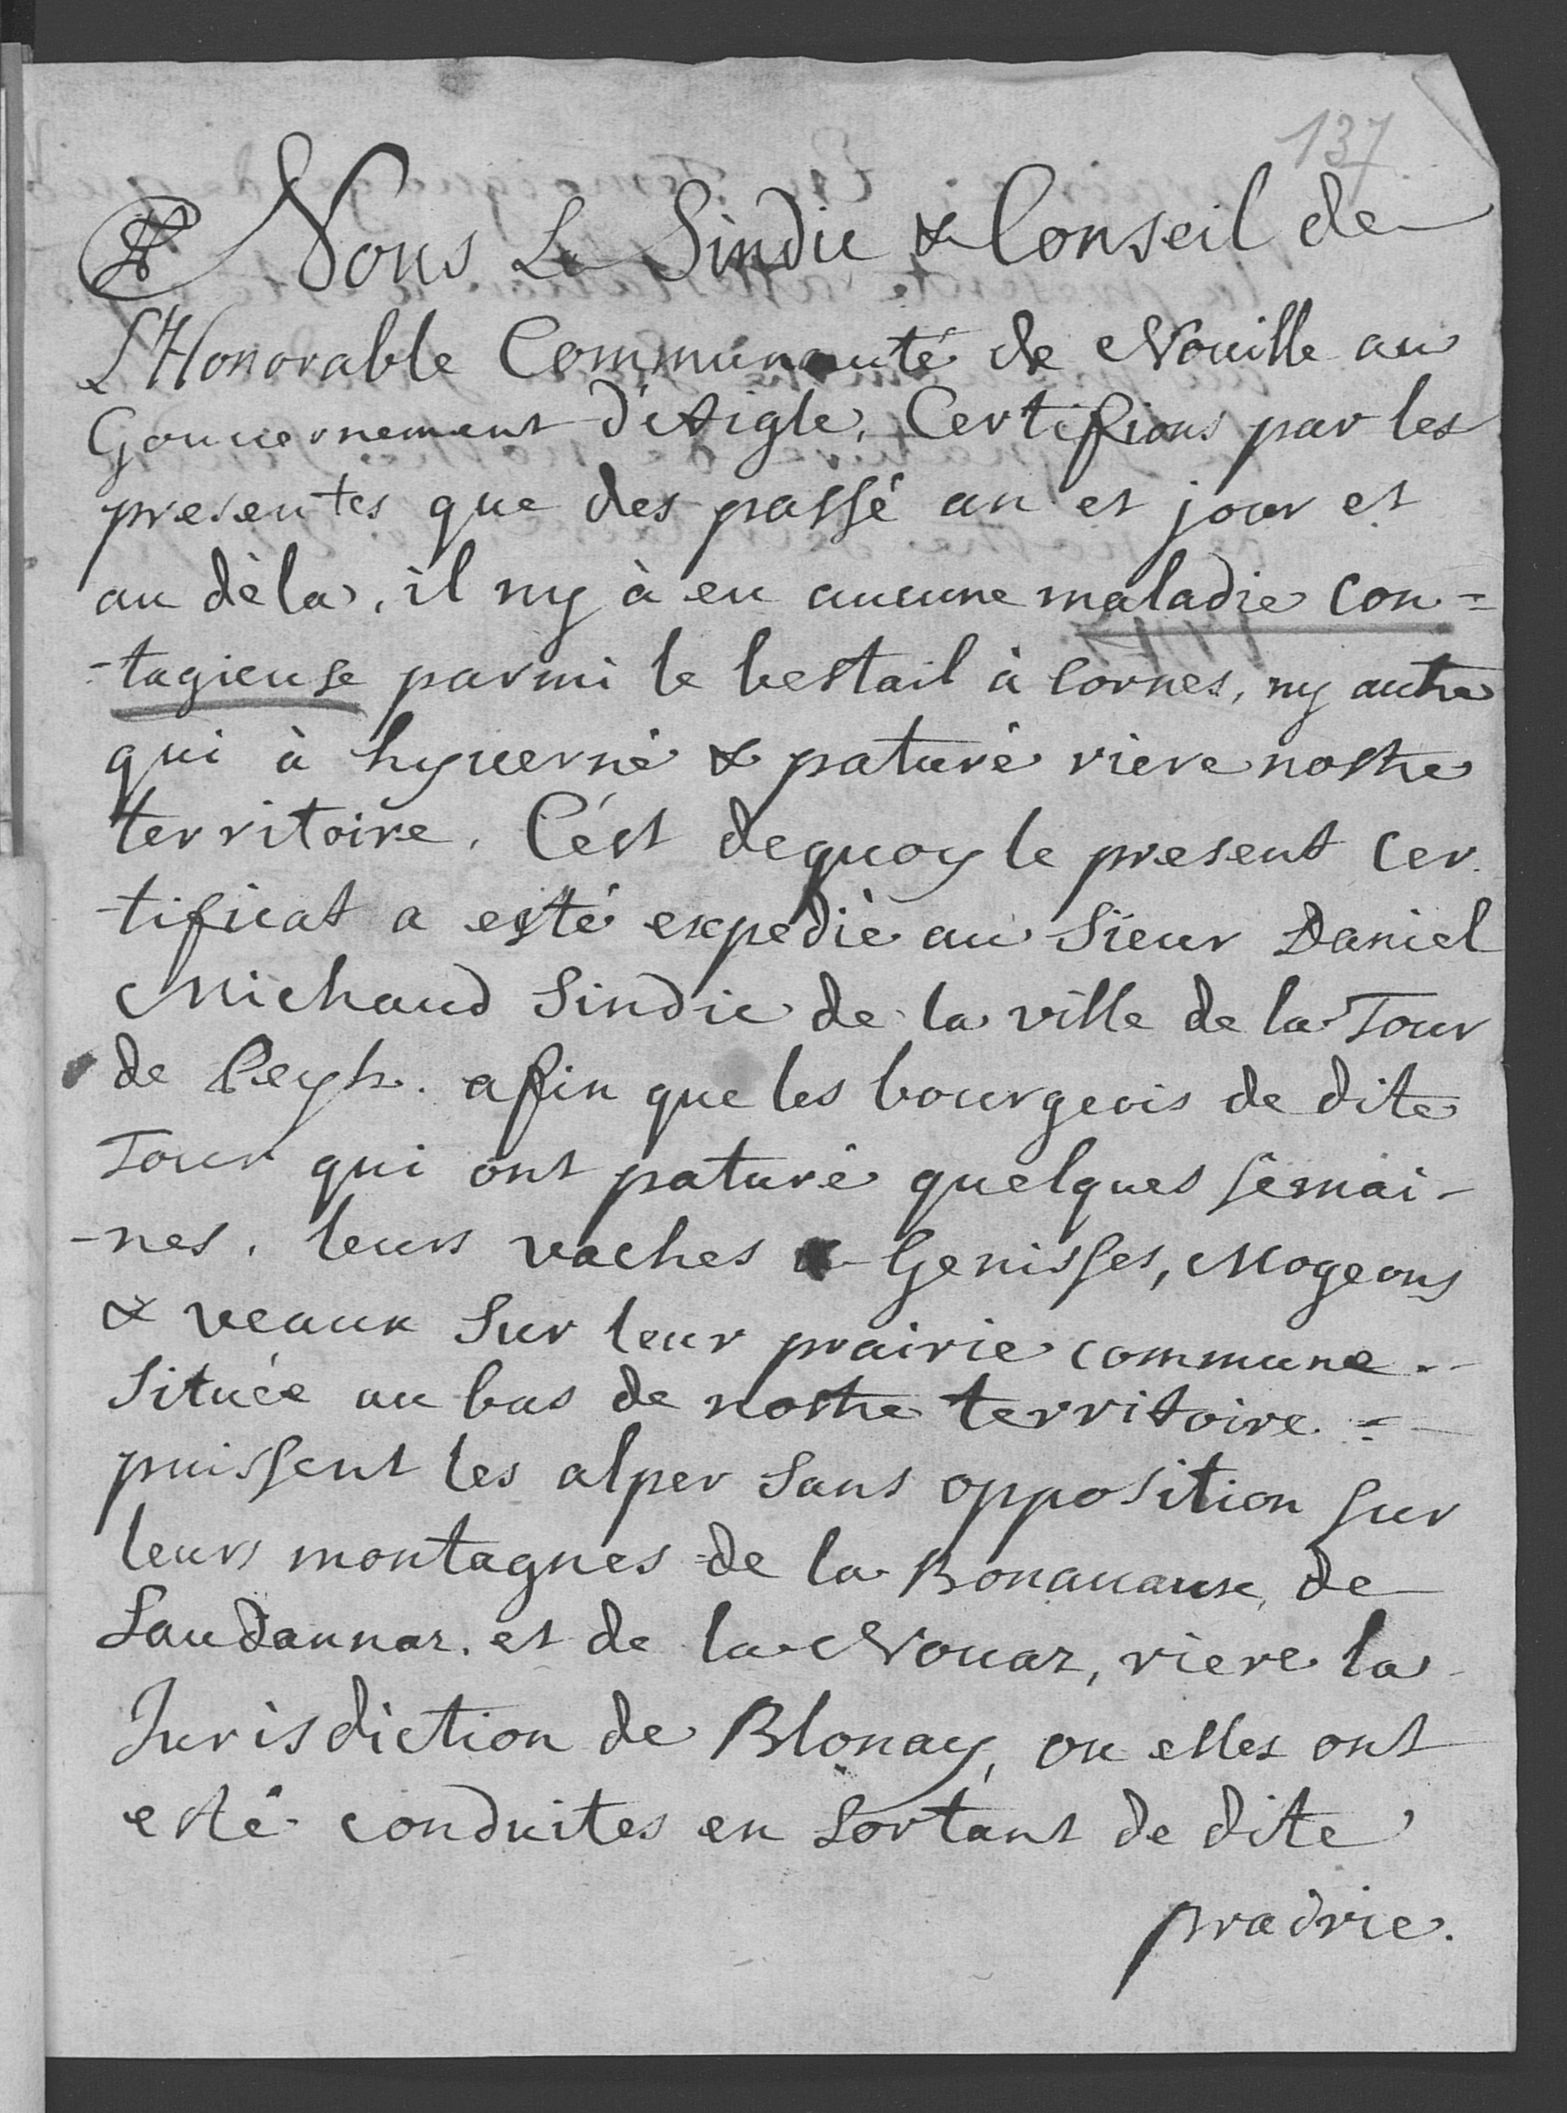 137
Nous Le Sindic & Conseil de
L'Honorable Communauté de Nouille au
Gouuernement d'Aigle, Certifions par les
presentes que des passé an et jour et
au dèla, il ny à eu aucune maladie con=
-tagieuse parmi le bestail à Cornes, ny autre
qui à hyuerné & paturé riere nostre
territoire. C'ést dequoy le present Cer
-tificat a esté expedié au Sieur Daniel
Michaud Sindic de la ville de la Tour
de Peylz. afin que les bourgeois de dite
Tour qui ont paturé quelques semai-
-nes, leurs vaches & Genisses, Mogeons
& veaux Sur leur prairie commune.
Située au bas de nostre territoire =
puissent les alper Sans opposition sur
leurs montagnes de la Bonauaux, de
Saudannaz. et de la Nouaz, riere la
Jurisdiction de Blonay, ou elles ont
esté conduites en Sortant de dite
prairie.